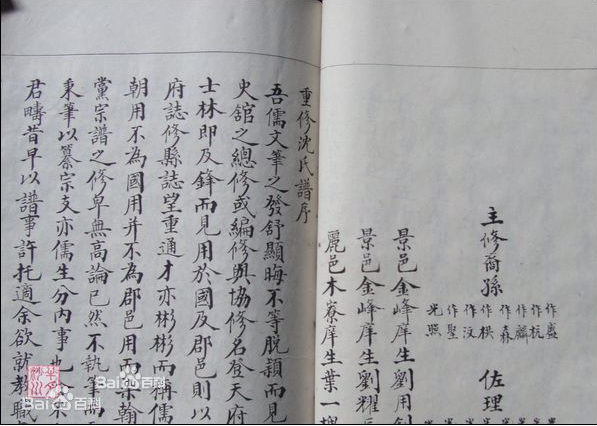 主修裔孫
作盛
作杭
作麟
作森
作棋
作汶
作聖
光照
佐理
景邑金峰庠生劉用
景邑金峰庠生劉耀
麗邑木寮庠生葉一
重修沈氏譜序
吾儒文筆之發舒顯晦不等脫穎而見
史舘之總修或編修與協修名登天府
士林即及鋒而見用於國及郡邑則以
府誌修縣誌望重通才亦彬彬而稱儒
朝用不為國用并不為郡邑用而翰
黨宗譜之修卑無高論已然不執筆而
秉筆以纂宗支亦儒生分內事也
君疇昔早以譜事許托適余欲就教職
Bai百科
Bai百科